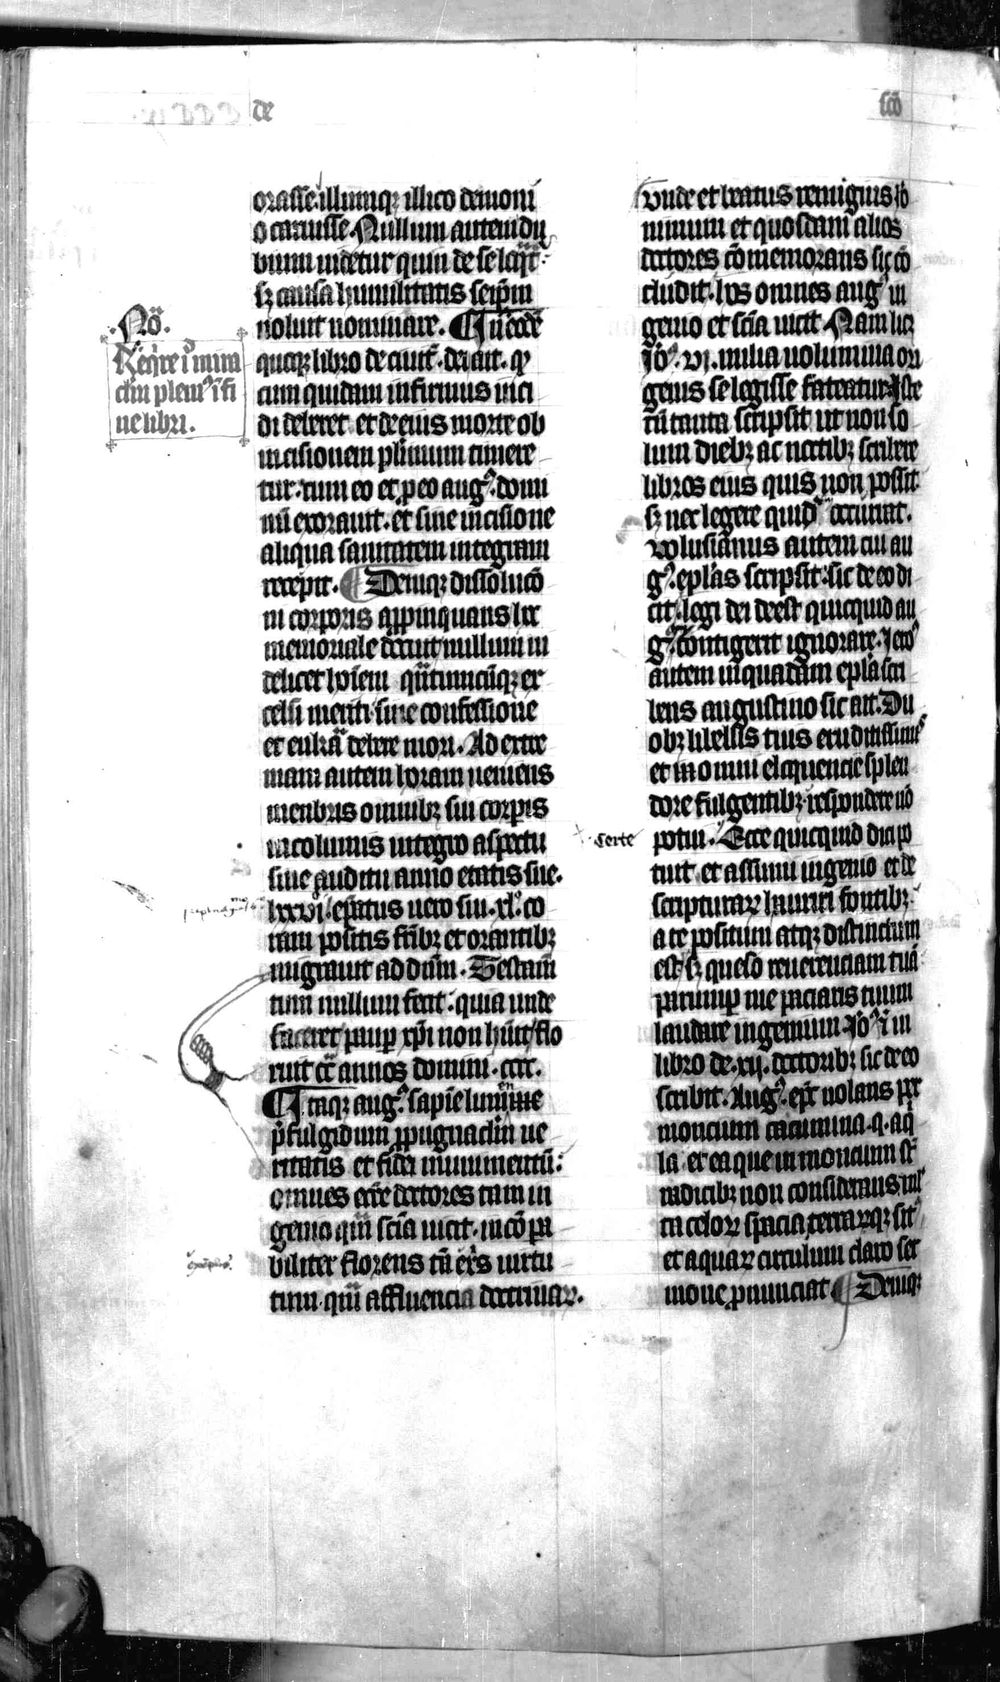 de
sco
orasse. illumqz illico demoni
o caruisse. Nullum autem du
bium uidetur quin de se loqr̄t
sz causa humilitatis seip̄m
noluit nominare. ¶ In eodē
quoqz libro de ciuit̄. dei ait. qͥ
cum quidam infirmus inci
di deberet et de eius morte ob
incisionem plimum timere
tur. cum eo et p eo augꝰ. domi
nū exorauit. et sine incisione
aliqua sanitatem integram
recepit. ¶ Deniqz dissolucō
ni corporis appinquans hoc
memoriale docuit nullum ui
delicet hoīem quātumcūqz ex
celsi meriti sine confessione
et eukarᷓ debere mori. Ad extre
mam autem horam ueniens
menbris omnibz sui corpis
incolumis integro aspectu
siue auditu anno etatis sue.
lxxvi. epatus uero sui. xl. co
ram positis frībz et orantibz
migrauit ad dn̄m. Testam̄
tum nullum fecit: quia unde
faceret paup xp̄i non hūit. flo
ruit cᷓ annos domini. cccc.
¶ Itaqz augꝰ. sapīe lumine
p̄fulgidum ppugnaclm̄ ue
ritatis et fidei munimentū:
omnes eccē doctores tam in
genio qm̄ scīa uicit. incōpa
biliter florens tā exs̄ uirtu
tum. qm̄ affluencia doctrinaꝝ.
No.
Reqire ī mira
clm plenꝰ ī fi
ne libri.
Vnde et beatus remigius iꝰ
nimum et quosdam alios
doctores cōmemorans sic cō
cludit. hos omnes augꝰ in
genio et scīa uicit. Nam licz
iꝰ. vi. milia uolumina ori
genis se legisse fateatur. Iste
tn̄ tanta scripsit ut non so
lum diebz ac noctibz scribere
libros eius quis non possit
sz nec legere quidē occurrat.
Volusianus autem cui au
gꝰ. epl̄as scripsit. sic de eo di
cit. legi dei deest quicquid au
gꝰ. contigerit ignorare. Ierꝰ
autem in quadam epl̄a scri
bens augustino sic ait. Du
obz libellis tuis eruditissimis
et in omni eloquencie splen
dore fulgentibz respondere nō
potui. Certe quicquid dici po
tuit et assumi ingenio et de
scripturaꝝ hauriri fontibz
a te positum atqz distinctum
est. sz queso reuerenciam tuā
parump me paciaris tuum
laudare ingenium. Iꝰ. ī in
libro de. xii. doctoribz sic de eo
scribit. Augꝰ. ep̄c uolans per
moncium cacumina. q. aq̇
la. et ea que in moncium st̄
radicibz non considerans. ml̄
ta celoꝝ spacia terraꝝqz sitꝰ
et aquaꝝ circulum claro ser
mone pnunciat ¶ Deniqz
certe